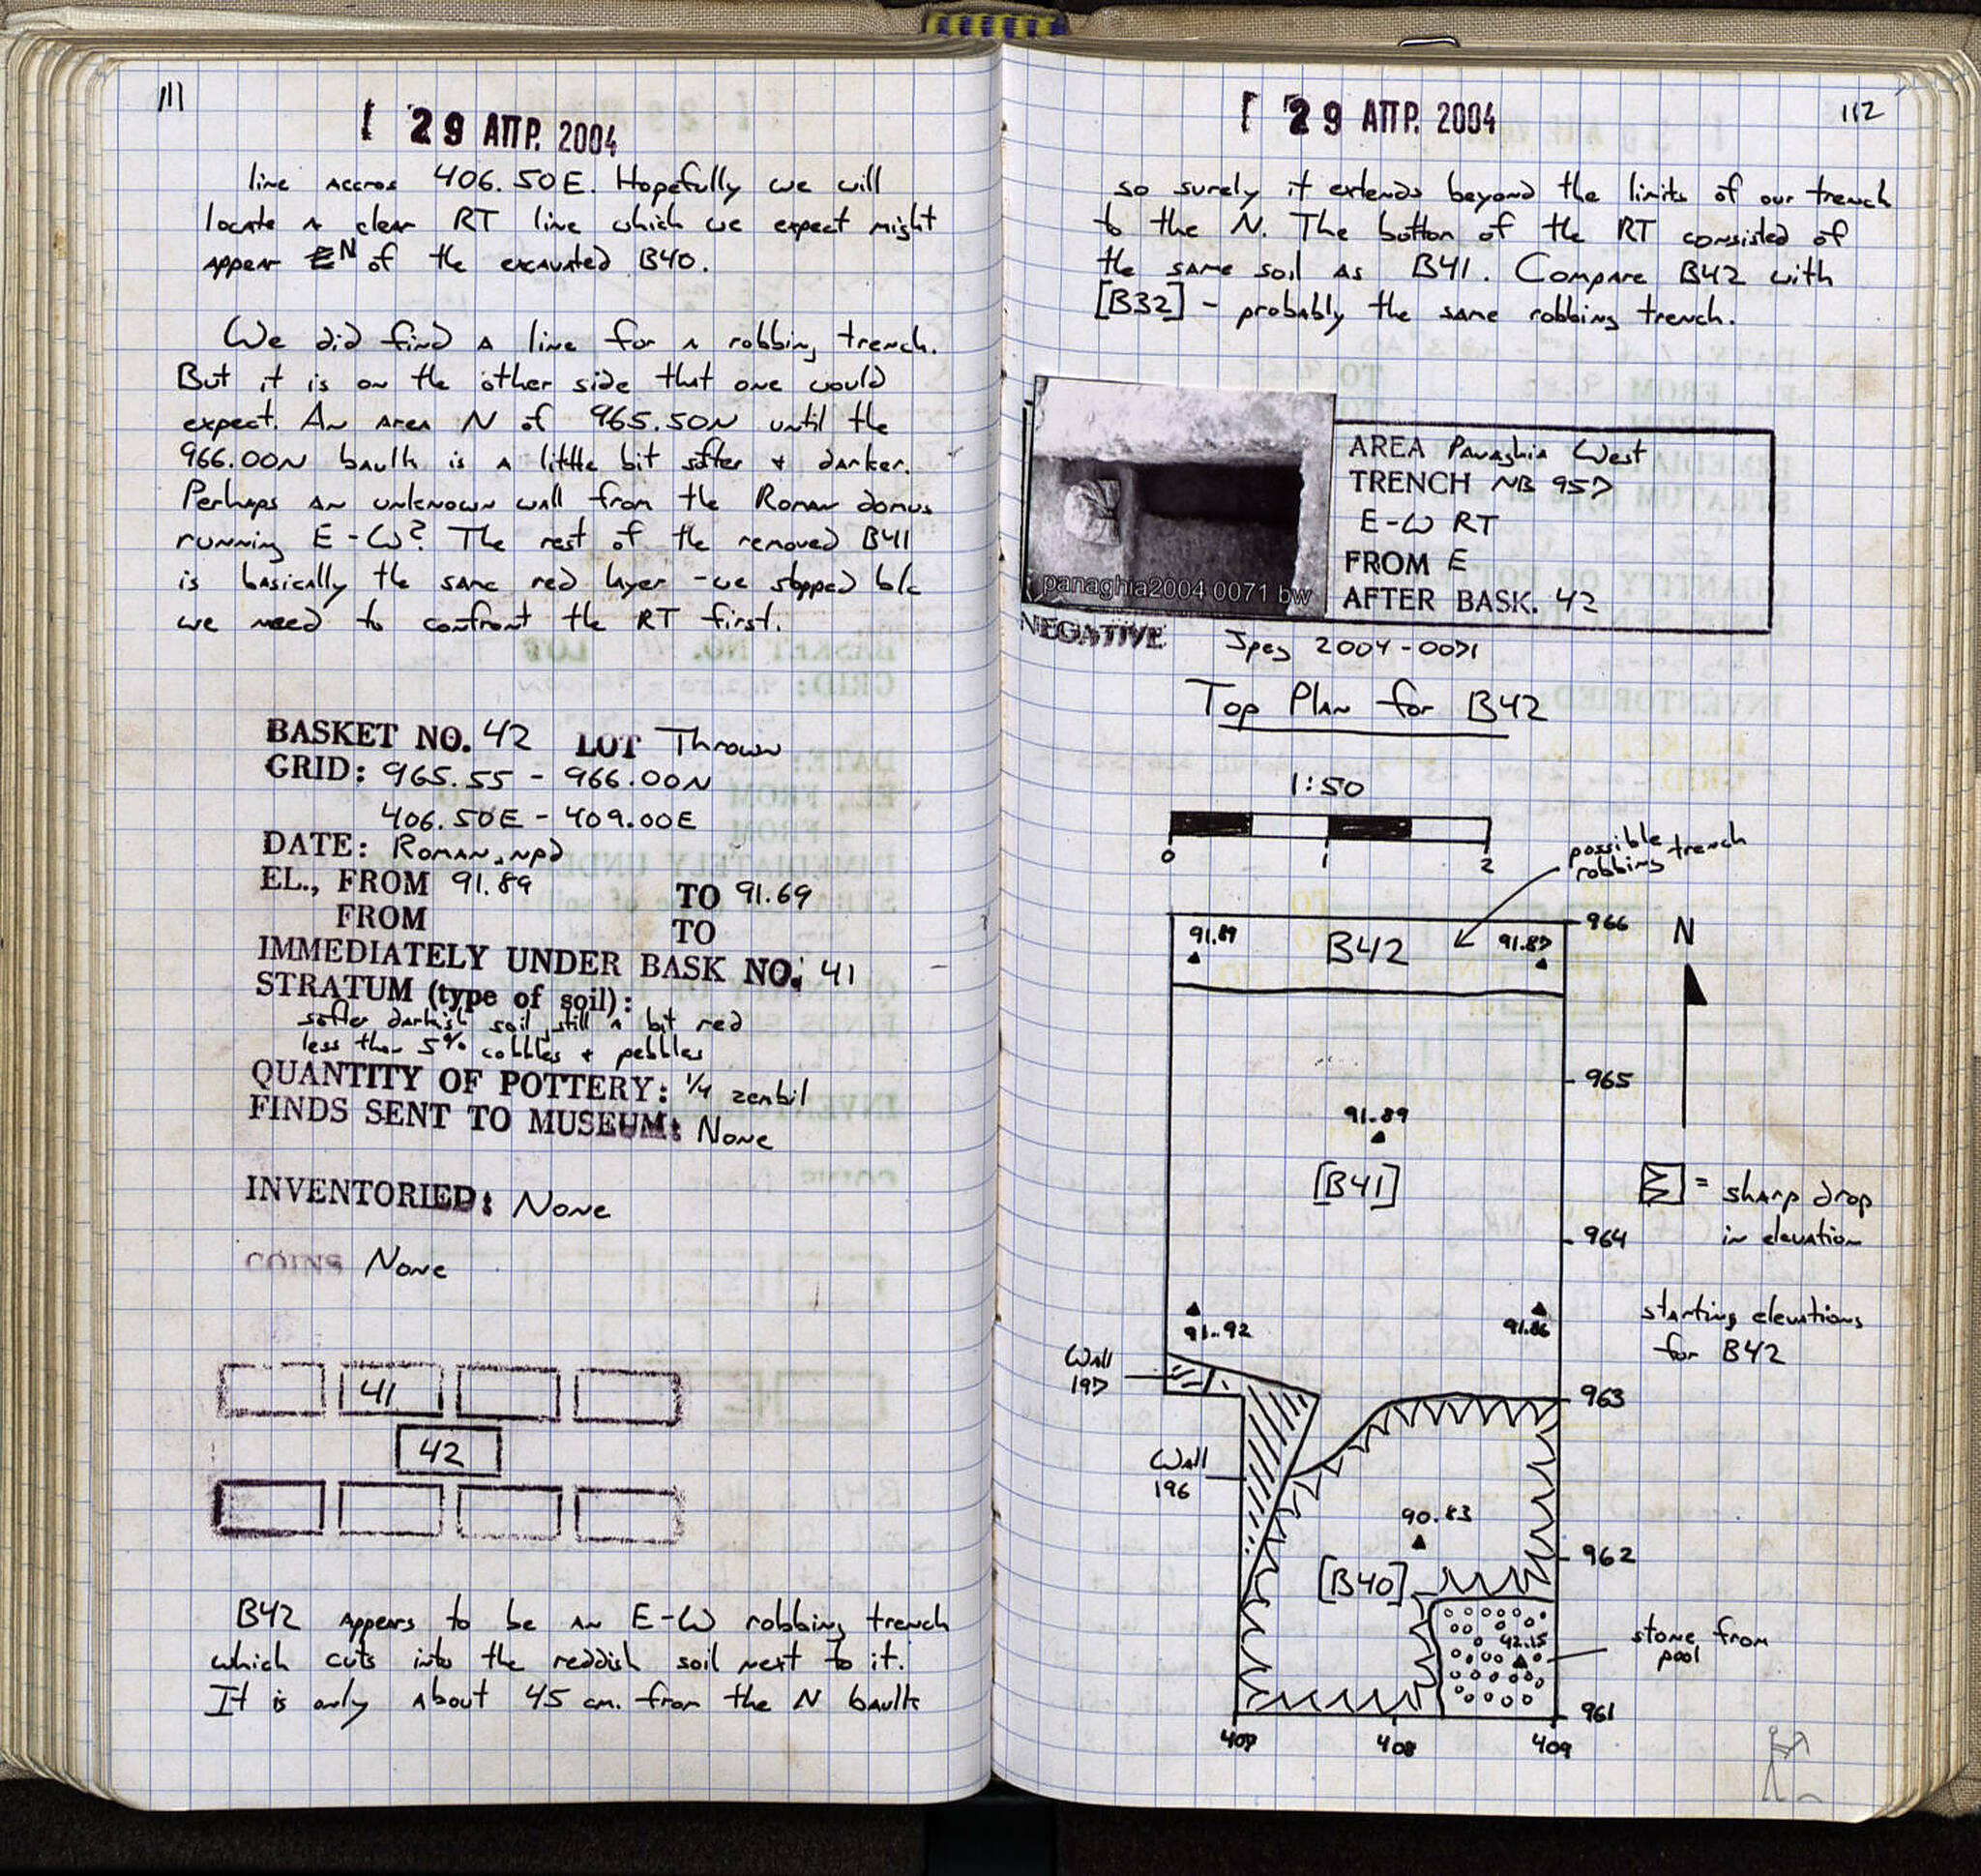 111
29 ΑΠΡ. 2004
line accros 406.50E. Hopefully we will
locate a clear RT line which we expect might
appear N of the excavated B40.
We did find a line for a robbing trench.
But it is on the other side that one would
expect. An area N of 965.50N until the
966.00N baulk is a little bit softer + darker.
Perhaps an unknown wall from the Roman domus
running E-W? The rest of the removed B41
is basically the same red layer - we stopped b/c
we need to confront the RT first.
BASKET NO. 42 LOT Thrown
GRID: 965.55 - 966.00N
406.50E - 409.00E
DATE: Roman, npd
EL., FROM 91.89 TO 91.69
FROM TO
IMMEDIATELY UNDER BASK NO. 41
STRATUM (type of soil):
softer darkish soil, still a bit red
less than 5% cobbles + pebbles
QUANTITY OF POTTERY: 1/4 zembil
FINDS SENT TO MUSEUM: None
INVENTORIED: None
COINS None
41
42
B42 appears to be an E-W robbing trench
which cuts into the reddish soil next to it.
It is only about 45 cm. from the N baulk
29 ΑΠΡ. 2004
112
so surely it extends beyond the limits of our trench
to the N. The bottom of the RT consisted of
the same soil as B41. Compare B42 with
[B32] - probably the same robbing trench.
panaghia2004 0071 bw
AREA Panaghia West
TRENCH NB 957
E-W RT
FROM E
AFTER BASK. 42
NEGATIVE
Jpeg 2004-0071
Top Plan for B42
1:50
0 1 2
possible
robbing trench
966
91.89 B42 91.87
N
965
91.89
[B41]
= sharp drop
in elevation
964
91.92 91.86
starting elevations
for B42
Wall
197
963
Wall
196
90.83
962
[B40]
42.15
stone from
pool
961
407 408 409